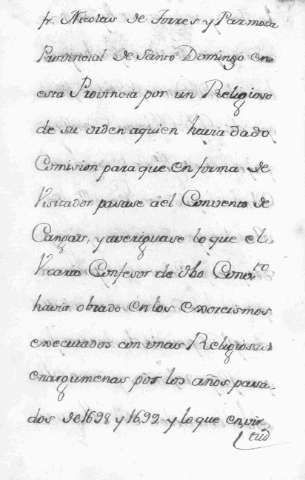 fr. Nicolas de Torres y Parmosa
Provincial de Santo Domingo en
esta Provincia por un Religioso
de su orden aquien havia dado
Comision para que en forma de
Visitador pasase á el Convento de
Cangas, y averiguase lo que el
Vicario Confesor de dho Conv.to
havia obrado en los exorcismos
executados con unas Religiosas
energumenas por los años pasa-
dos de 1698 y 1699 y lo que en vir
tud